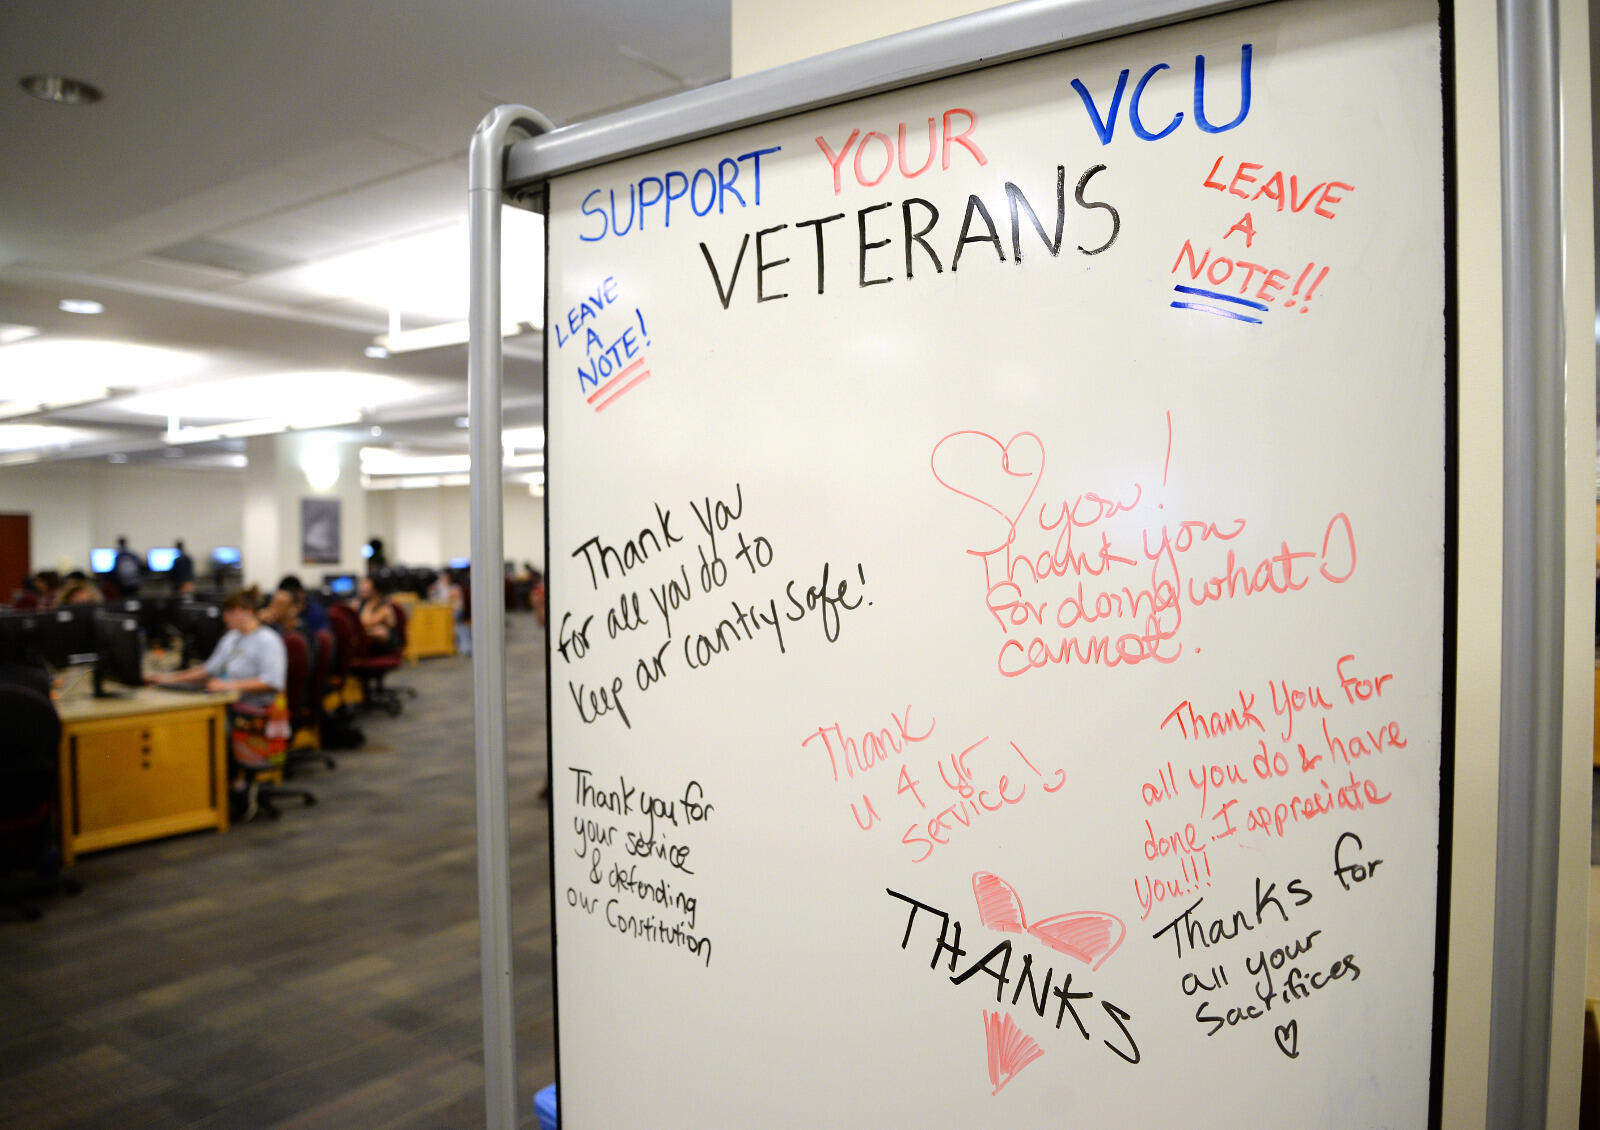 SUPPORT YOUR VCU
VETERANS
LEAVE
A
NOTE!
LEAVE
A
NOTE!!
Thank you
for all you do to
keep our country safe!
you!
Thank you
for doing what I
cannot.
Thank
u 4 yr
service!
Thank You for
all you do & have
done. I appreciate
you!!!
Thank you for
your service
& defending
our Constitution
THANKS
Thanks for
all your
Sacrifices